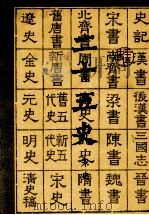 史記 漢書 後漢書 三國志 晉書
宋書 南齊書 梁書 陳書 魏書
北齊書 周書 隋書
二十五史
舊唐書 新唐書 舊五代史 新五代史 宋史
遼史 金史 元史 明史 清史稿